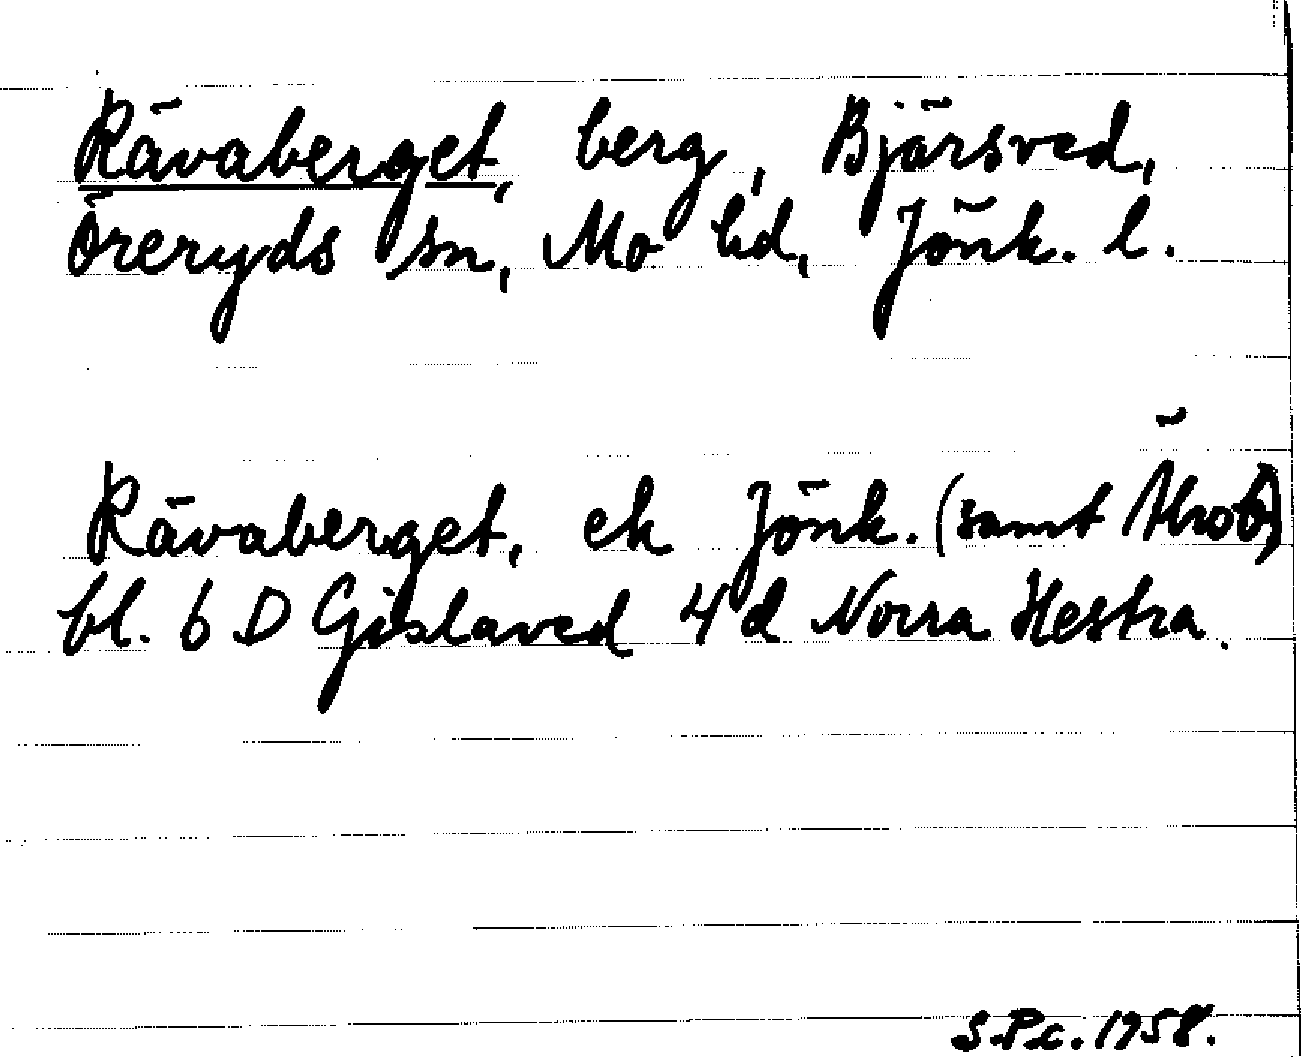 Rävaberget, berg, Bjärsved,
Öreryds sn, Mo hd, Jönk. l.
Rävaberget, ek Jönk. (samt Ähob)
bl. 6 D Gislaved 4 d Norra Hestra.
S.P.c. 1958.